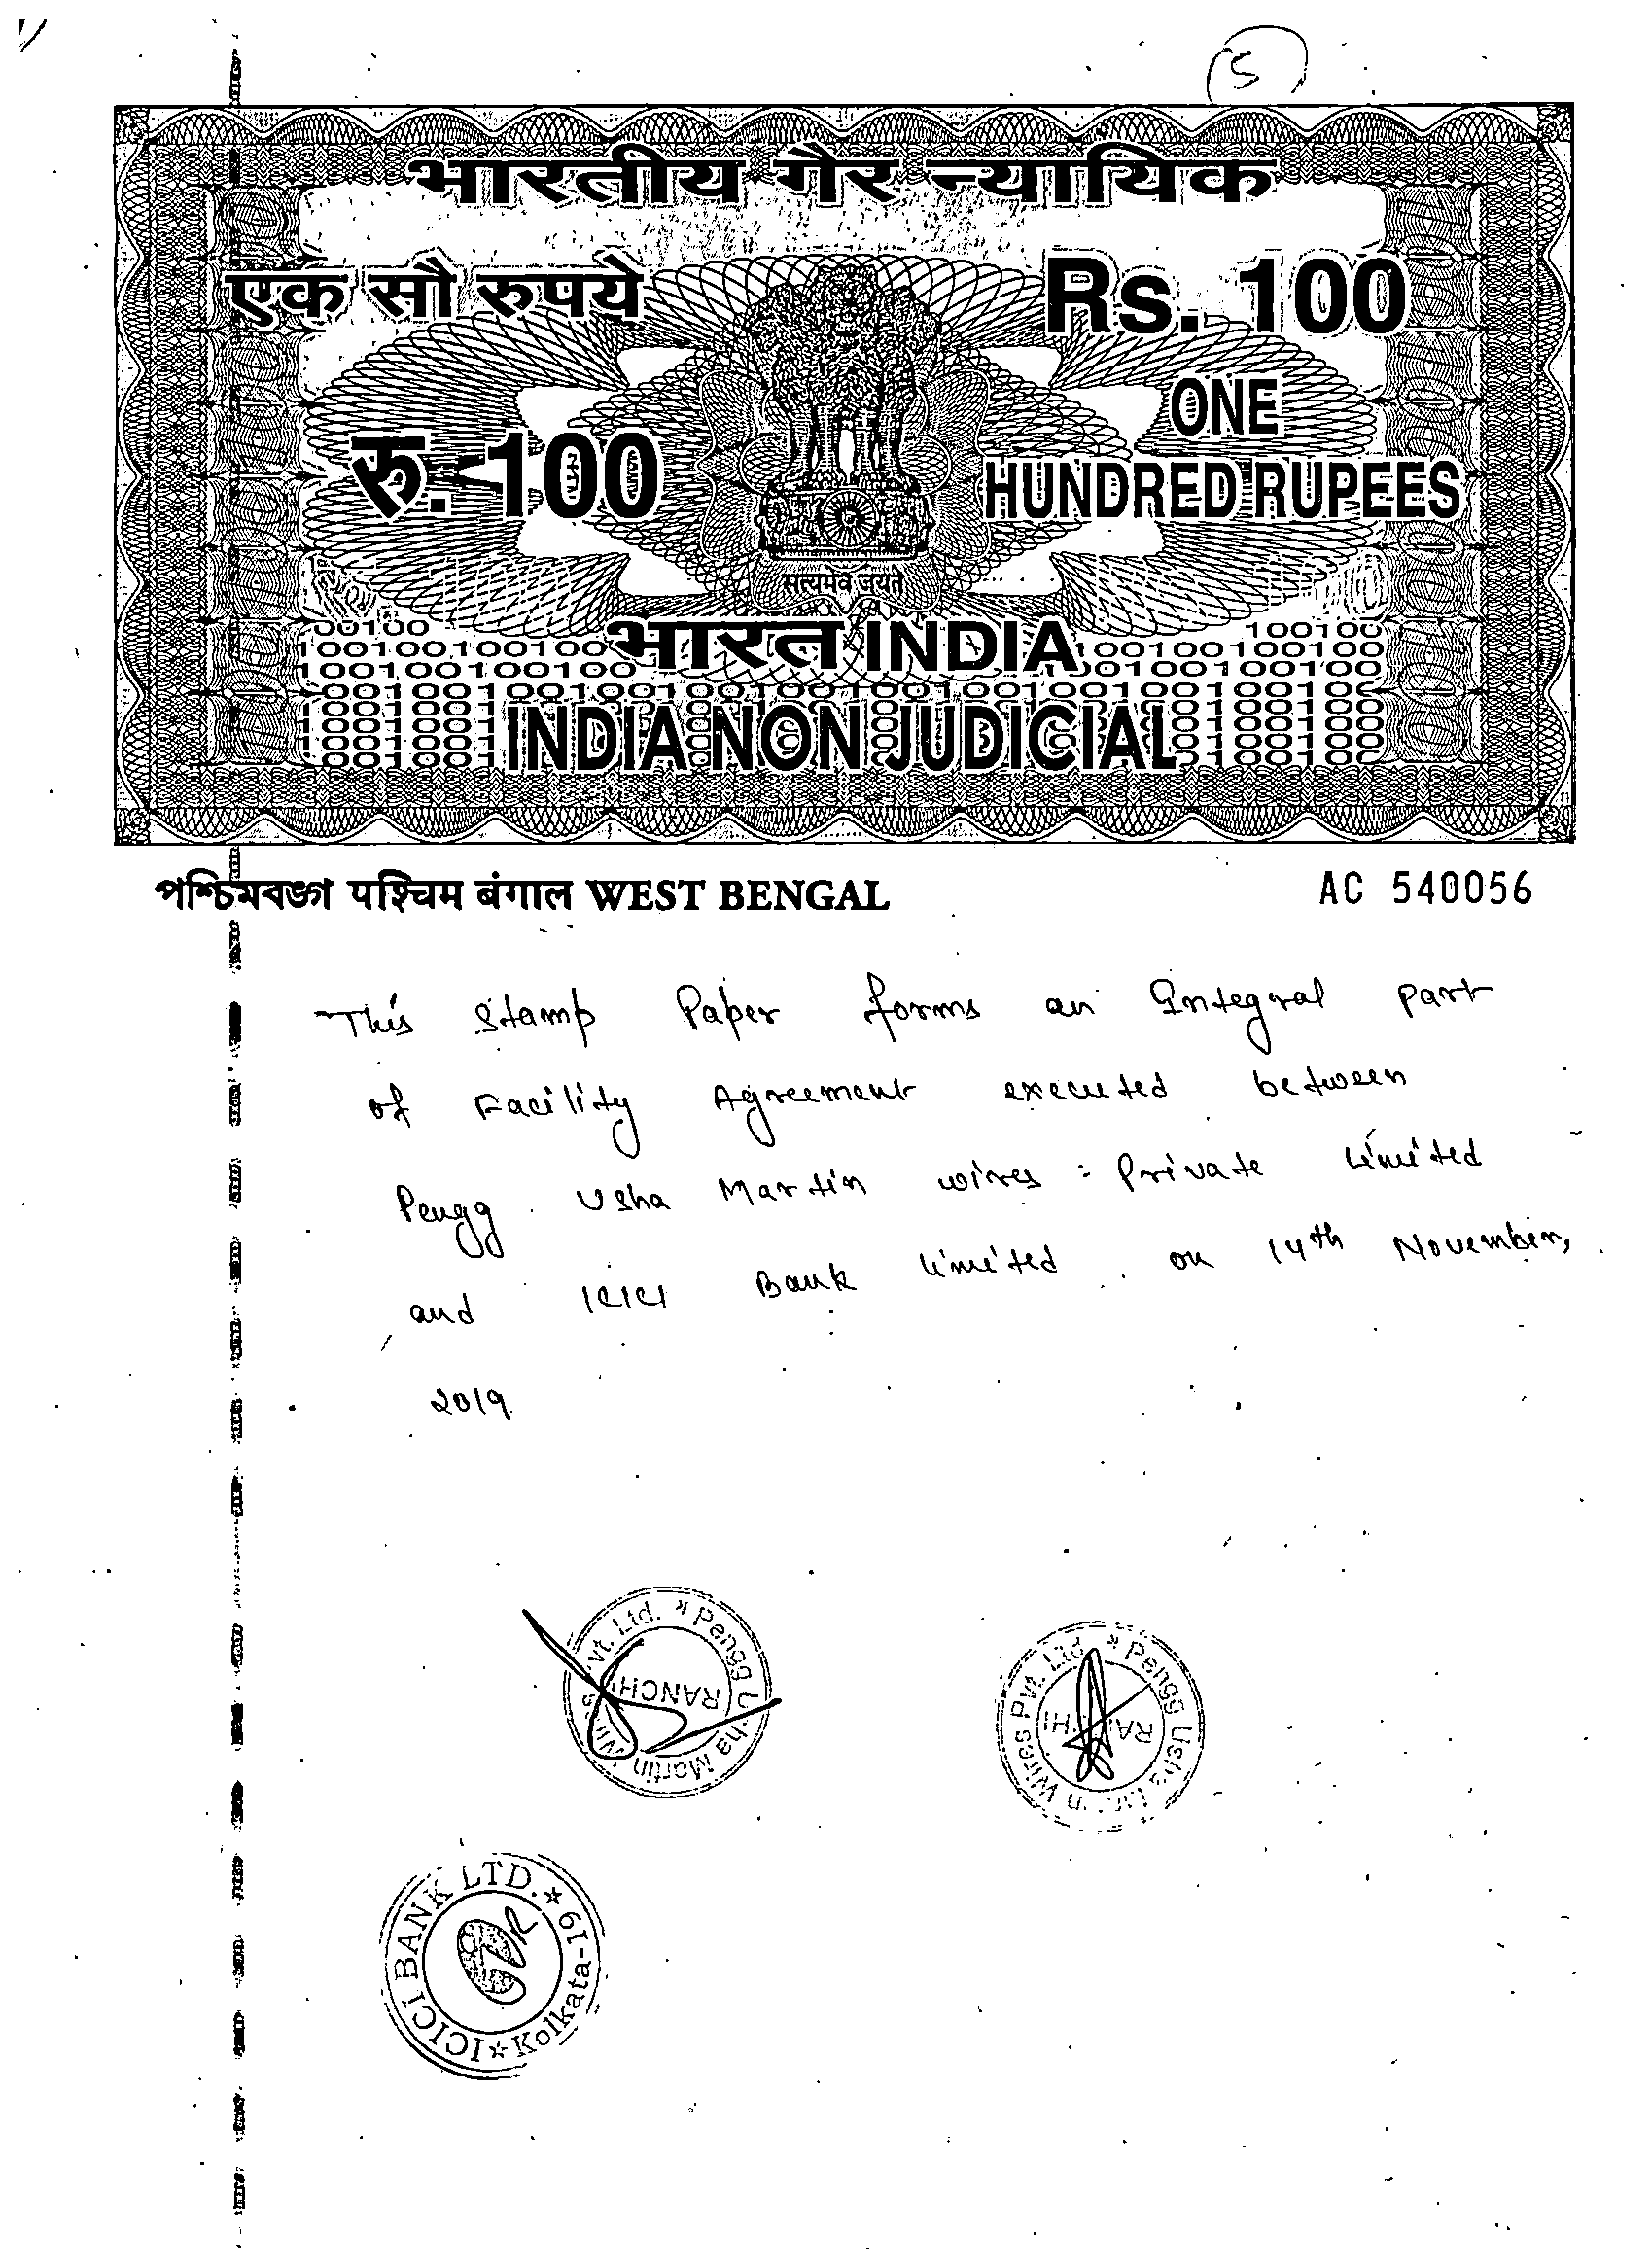 5
भारतीय गैर न्यायिक
एक सौ रुपये
Rs. 100
रु. 100
ONE
HUNDRED RUPEES
सत्यमेव जयते
भारत INDIA
INDIA NON JUDICIAL
পশ্চিমবঙ্গ पश्चिम बंगाल WEST BENGAL
AC 540056
This Stamp Paper forms an Integral part
of Facility Agreement executed between
Pengg Usha Martin wires Private Limited
and ICICI Bank Limited on 14th November,
2019
Pengg Usha Martin Wires Pvt. Ltd. *
RANCHI
Pengg Usha Martin Wires Pvt. Ltd. *
RANCHI
ICICI BANK LTD. ★ Kolkata-19 ★